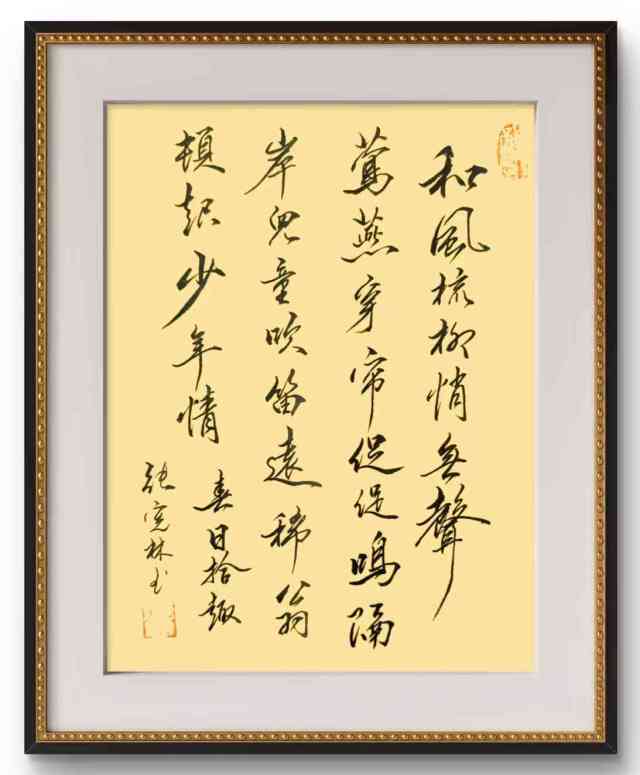 和風梳柳悄無聲
鶯燕穿帘促促鳴隔
岸兒童吹笛遠稀翁
頓起少年情
春日拾趣
張寬林书